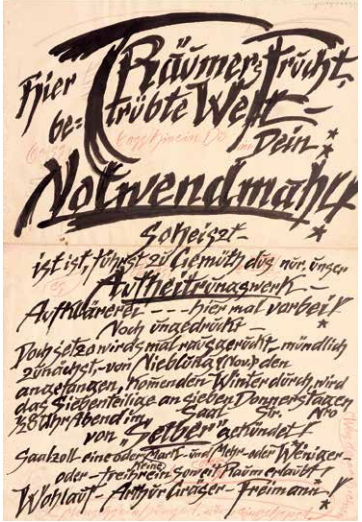 Hier TRäumers Frucht,
be=trübte Welt –
Dein
Notwendmahl!
So heiszt –
ist ist, führst zu Gemüth dirs nur, unser
Aufheitrungswerk –
Aufklärerei – – – – hier mal vorbei!
Noch ungedruckt –
Doch jetzo wirds mal rausgerückt, mündlich
zunächst – von Nieblung (Nov.) den
angefangen, komenden Winter durch, wird
das Siebenteilige an sieben Donnerstagen
½8 Uhr Abend im Saal Str. Nro
von „Selber" gekündet!
Saalzoll – eine oder Mark – und Mehr – oder Weniger –
oder – Keine – freihrein soweit Raum erlaubt!
Wohlauf – Arthur Gräser – Freimann!